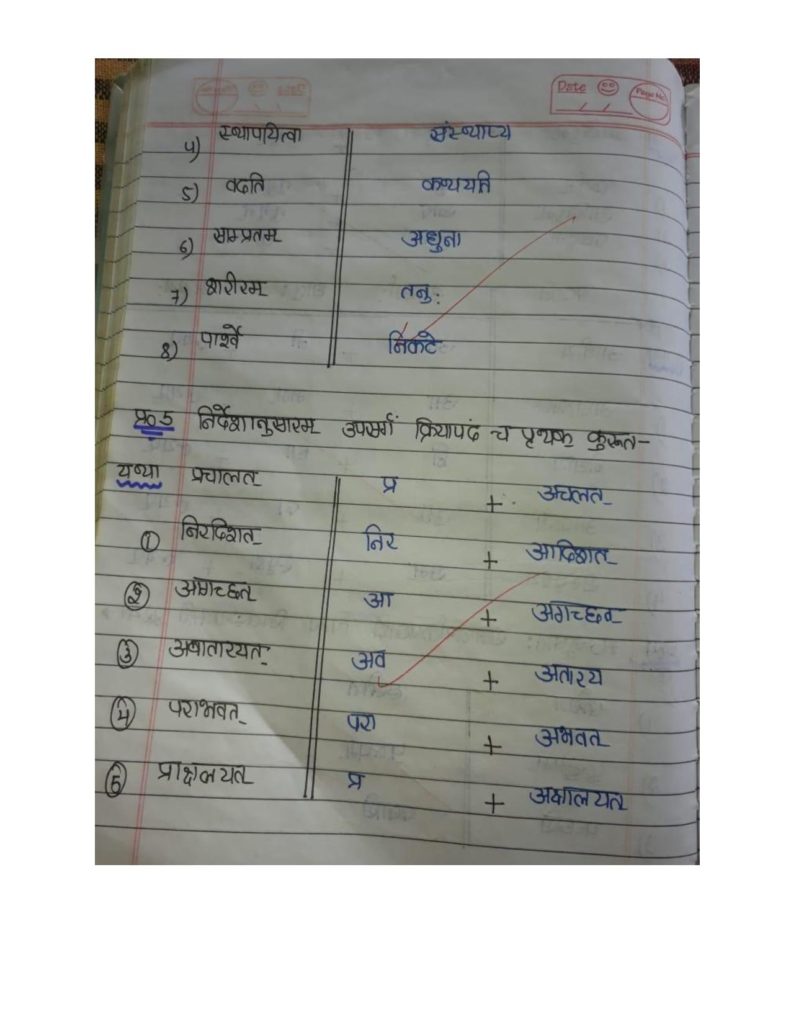 Date Page No.
4) स्थापयित्वा संस्थाप्य
5) वदति कथयति
6) साम्प्रतम् अधुना
7) शरीरम् तनु:
8) पार्श्वे निकटे
प्र० 5 निर्देशानुसारम् उपसर्गं क्रियापदं च पृथक् कुरूत-
यथा प्रचालत् प्र + अचलत्
① निरदिशत् निर + आदिशत्
② अगच्छत् आ + अगच्छत्
③ अवातारयत् अव + अतारय
④ पराभवत् परा + अभवत्
⑤ प्राक्षलयत् प्र + अक्षालयत्